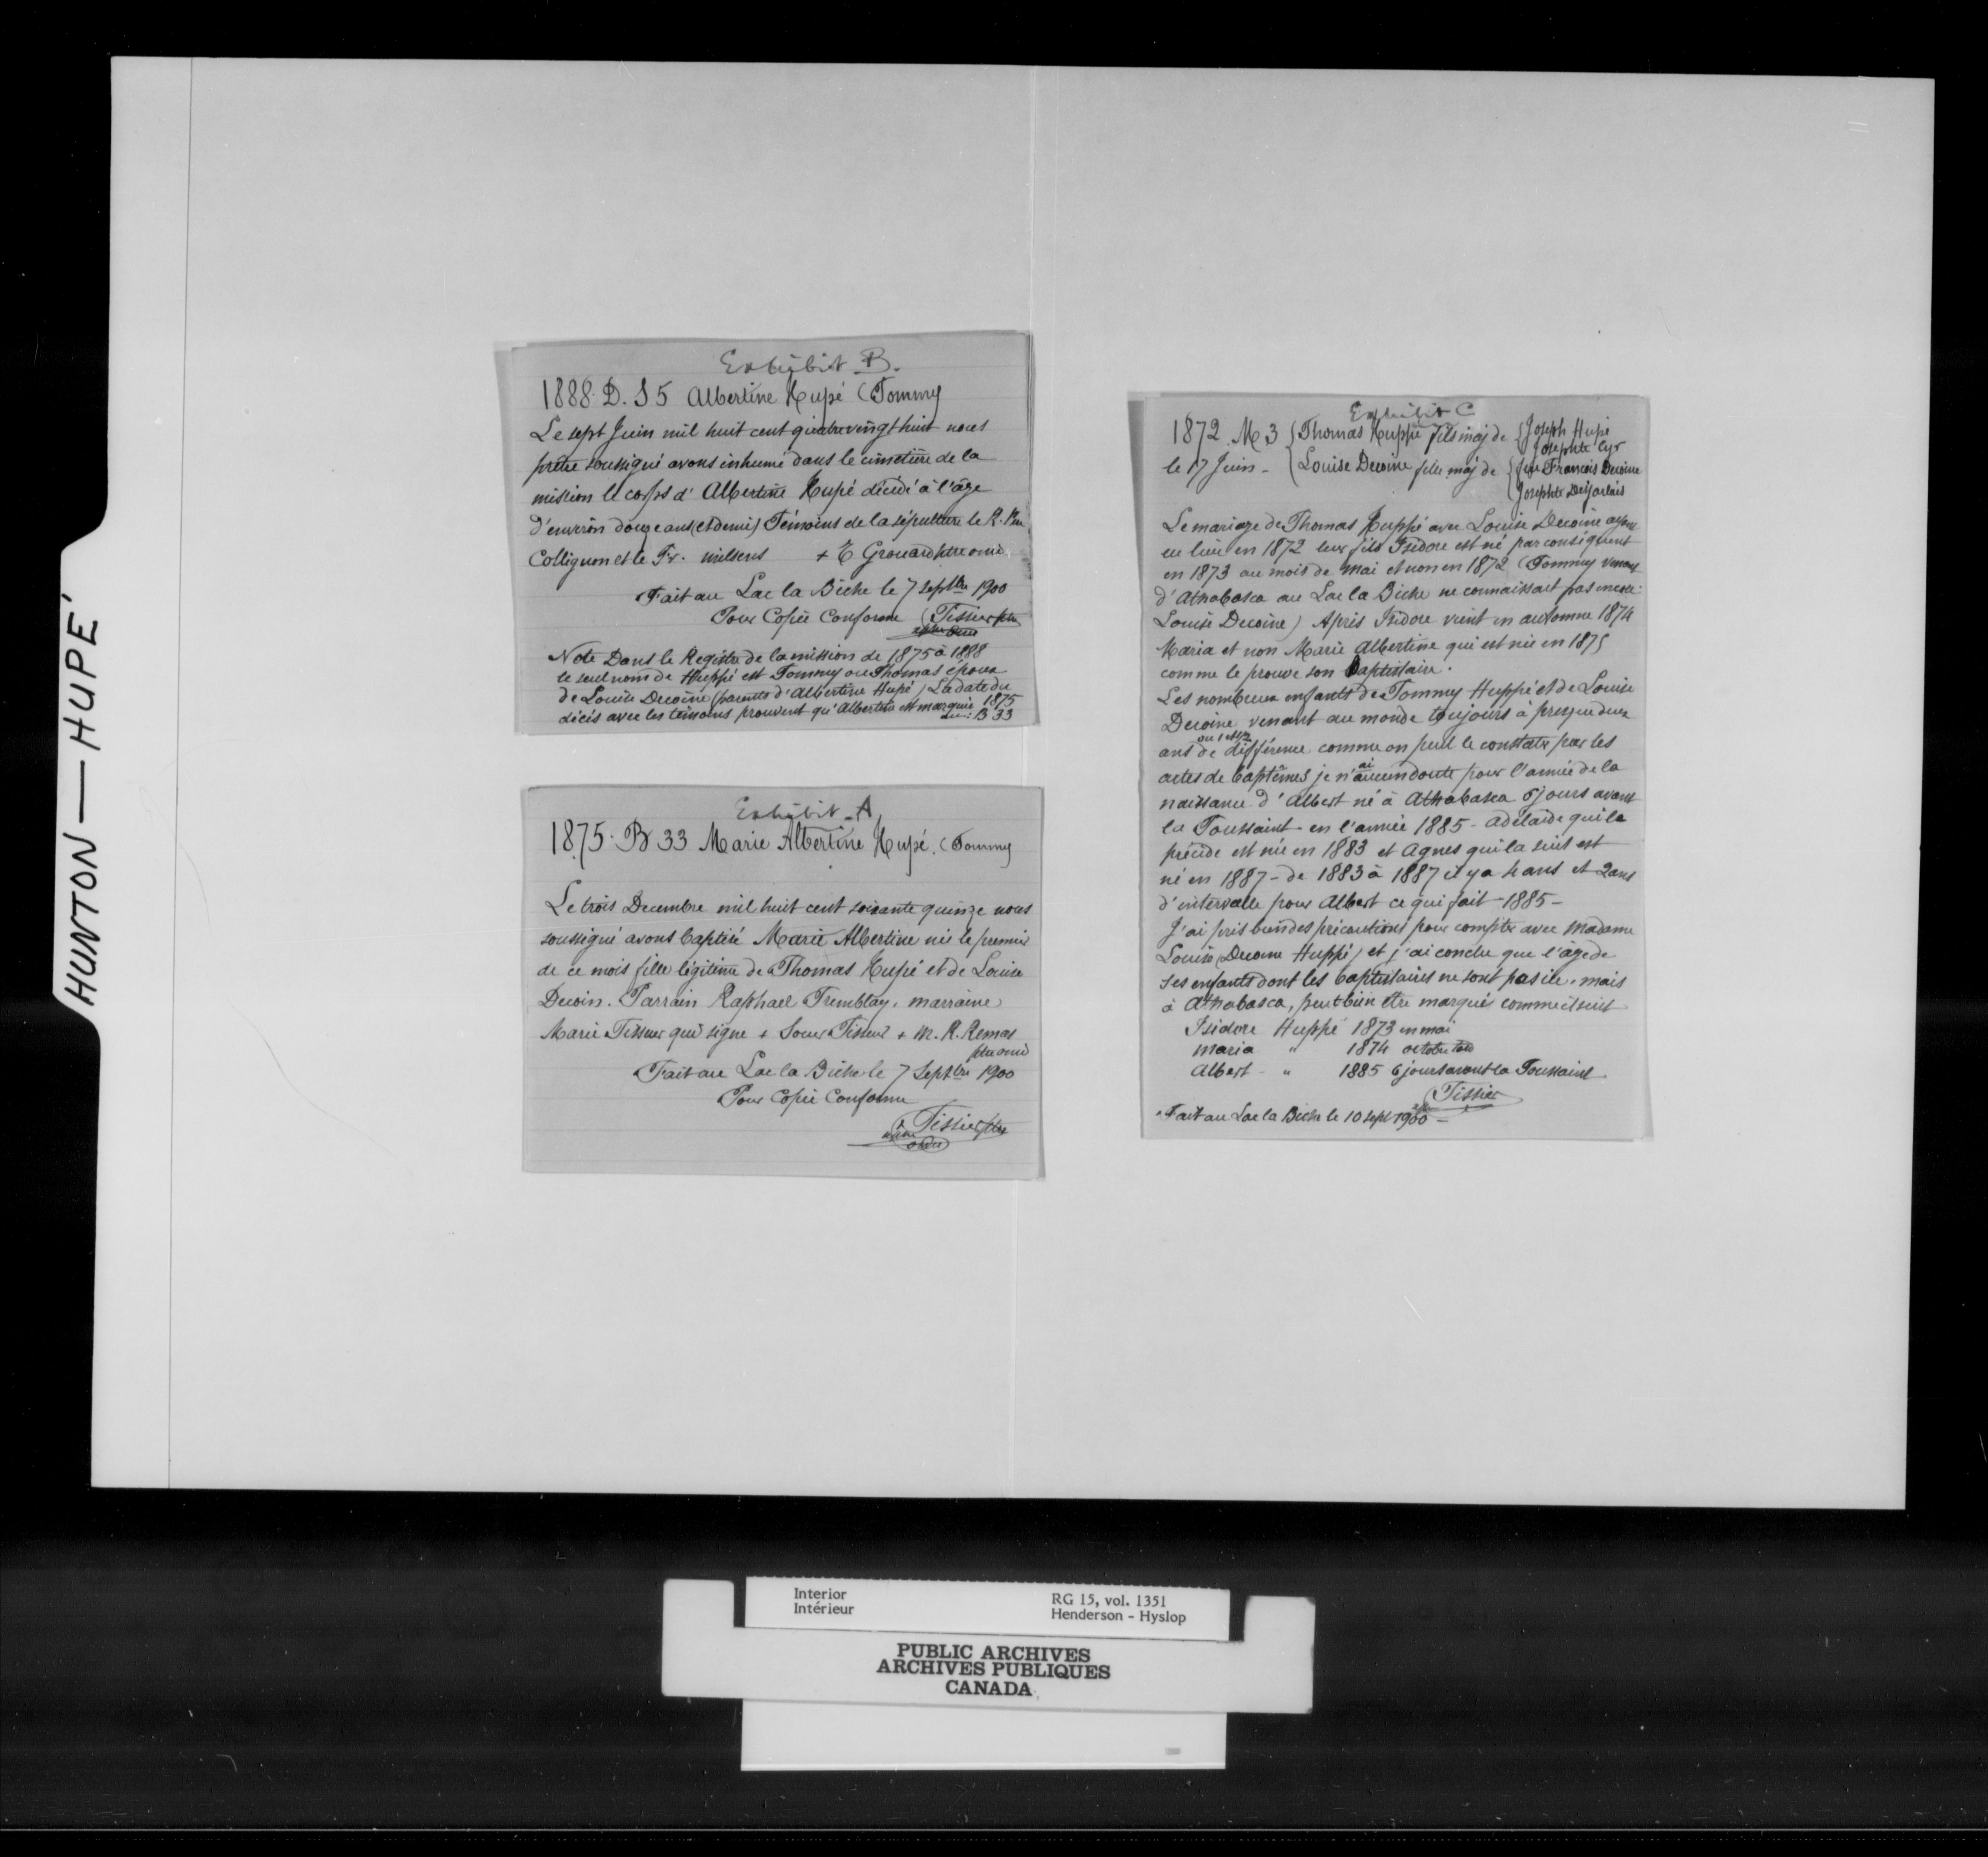 HUNTON — HUPÉ
Exhibit B.
1888. D. S 5 Albertine Hupé (Tommy
Le sept Juin mil huit cent quatrevingt huit nous
prêtre soussigné avons inhumé dans le cimetière de la
mission le corps d' Albertine Hupé décédé à l'âge
d'environ douze ans (et demi) Témoins de la sépulture le R.
Collignon et le Fr. + E Grouard ptre omi
Fait au Lac la Biche le 7 Septbre 1900
Pour Copie Conforme Tissier ptre
Note Dans le Registre de la mission de 1875 à 1888
le seul nom de Huppé est Tommy ou Thomas époux
de Louise Decoine (parents d'Albertine Hupé) La date du
décès avec les témoins prouvent qu'Albertine est marquée 1875
B 33
Exhibit A
1875. B 33 Marie Albertine Hupé. (Tommy
Le trois Decembre mil huit cent soixante quinze nous
soussigné avons baptisé Marie Albertine née le premier
de ce mois fille légitime de Thomas Hupé et de Louise
Decoin. Parrain Raphael Tremblay. marraine
Marie Tisseur qui signe + Soeur Tisseur + M. R. Remas
ptre omi
Fait au Lac la Biche le 7 Septbre 1900
Pour Copie Conforme
Tissier ptre
Exhibit C
1872. M 3 { Thomas Huppé fils maj de { Joseph Hupé
Josephte Cyr
le 17 Juin - { Louise Decoine fille maj de { feu François Decoine
Josephte Desjarlais
Le mariage de Thomas Huppé avec Louise Decoine ayant
eu lieu en 1872 leur fils Isidore est né par conséquent
en 1873 au mois de Mai et non en 1872 (Tommy venant
d'Athabasca au Lac la Biche ne connaissait pas encore
Louise Decoine) Après Isidore vient en automne 1874
Maria et non Marie Albertine qui est née en 1875
comme le prouve son baptistaire.
Les nombreux enfants de Tommy Huppé et de Louise
Decoine venant au monde toujours à presque deux
ans de différence comme on peut le constater par les
actes de baptêmes je n'ai aucun doute pour l'année de la
naissance d'Albert né à Athabasca 6 jours avant
la Toussaint - en l'année 1885 - Adelaide qui le
précède est née en 1883 et Agnes qui la suit est
né en 1887 - de 1883 à 1887 il y a 4 ans et 2 ans
d'intervalle pour Albert ce qui fait - 1885 -
J'ai pris bien des précautions pour compter avec Madame
Louise (Decoine Huppé) et j'ai conclu que l'âge de
ses enfants dont les baptistaires ne sont pas ici, mais
à Athabasca, peut bien être marqué comme il suit
Isidore Huppé 1873 en mai
Maria " 1874 octobre
Albert - " 1885 6 jours avant la Toussaint
Tissier
Fait au Lac la Biche le 10 sept 1900 -
Interior
Intérieur
RG 15, vol. 1351
Henderson - Hyslop
PUBLIC ARCHIVES
ARCHIVES PUBLIQUES
CANADA